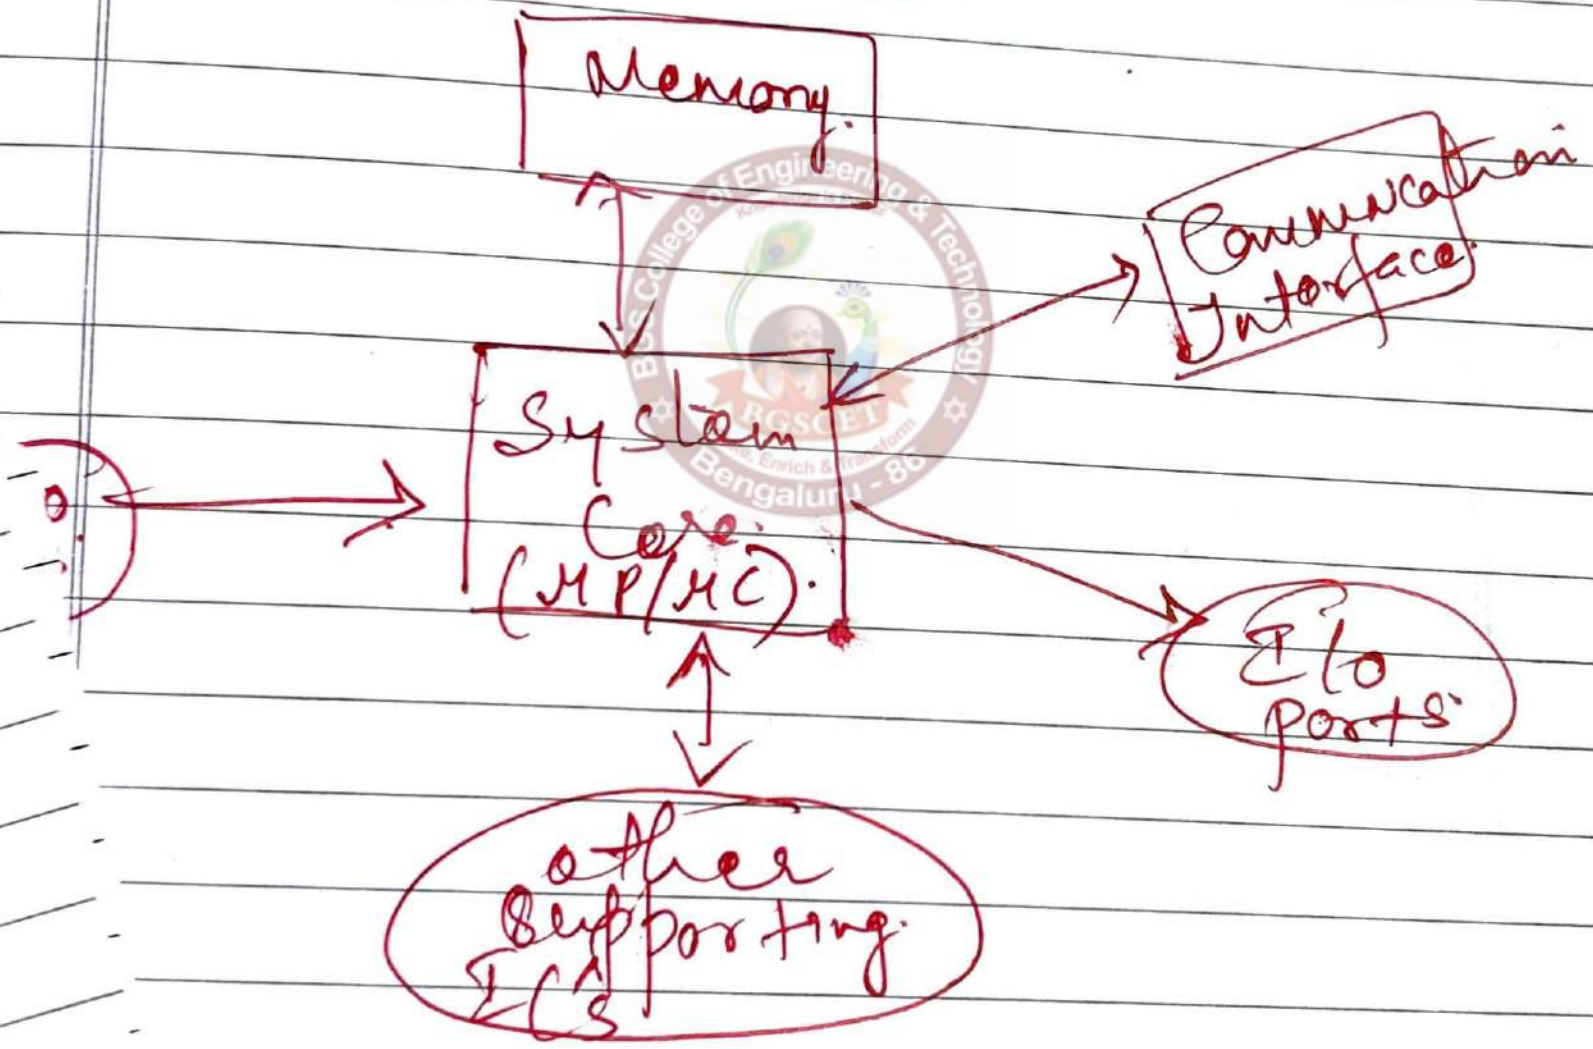 Memory.
Communication
Interface
System
Core.
(μP/μC).
I/o
ports
other
supporting.
IC's
BGS College of Engineering & Technology
BGSCET
Enrich & Transform
Bengaluru - 86